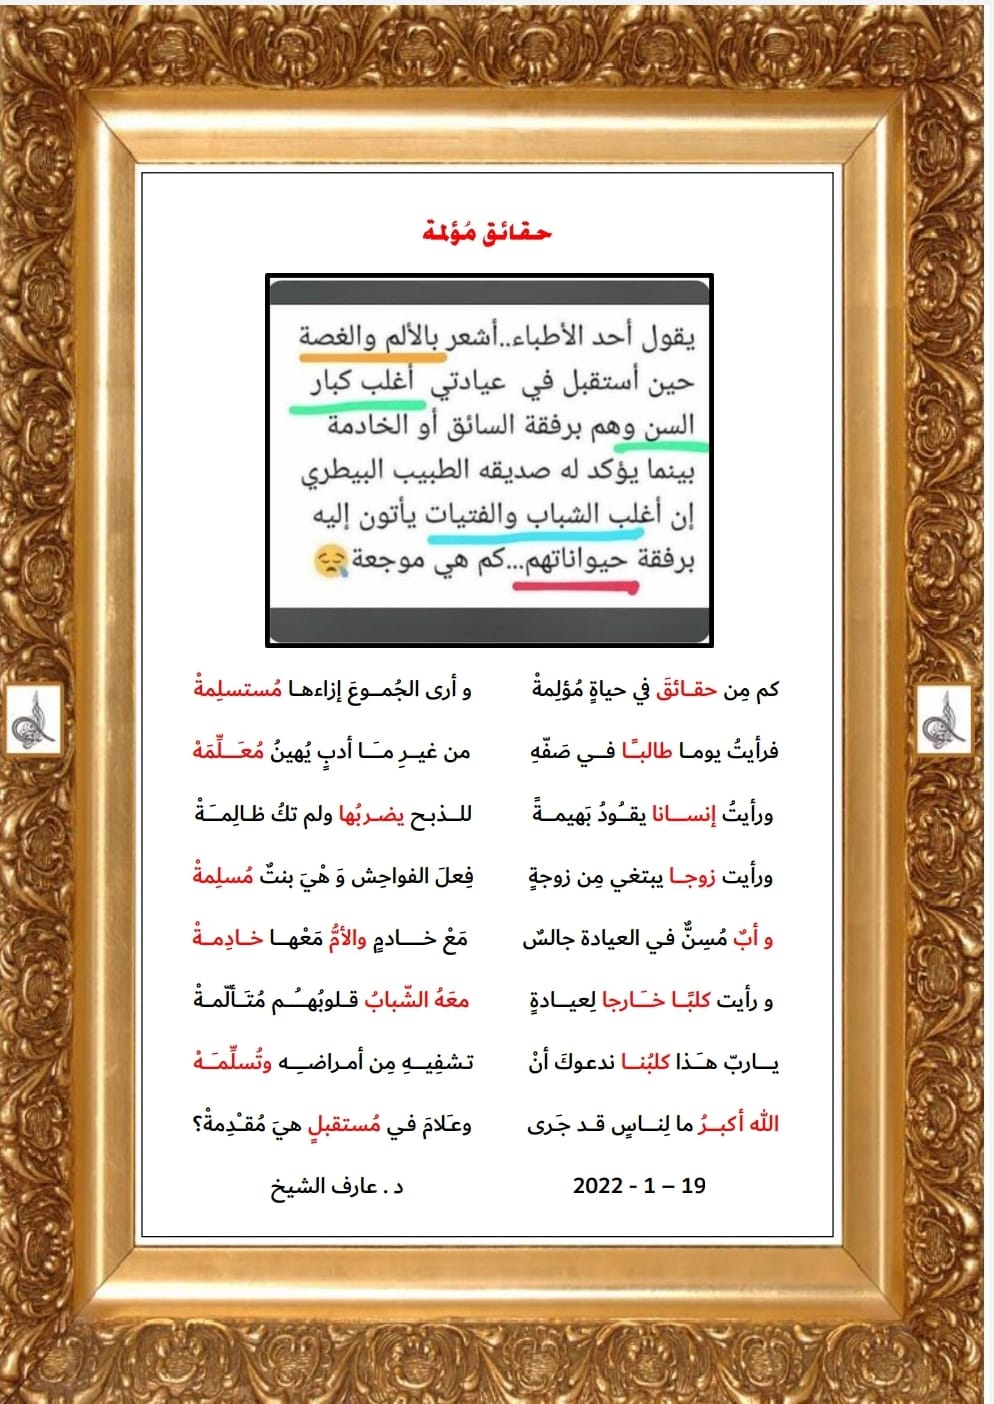 حقائق مُؤلمة
يقول أحد الأطباء..أشعر بالألم والغصة
حين أستقبل في عيادتي أغلب كبار
السن وهم برفقة السائق أو الخادمة
بينما يؤكد له صديقه الطبيب البيطري
إن أغلب الشباب والفتيات يأتون إليه
برفقة حيواناتهم...كم هي موجعة😪
كم مِن حقـائقَ في حياةٍ مُؤلِمةْ و أرى الجُمـوعَ إزاءهـا مُستسلِمةْ
فرأيتُ يومـا طالبـًا فــي صَفّهِ من غيـرِ مـَا أدبٍ يُهينُ مُعَــلِّمَهْ
ورأيتُ إنســانا يقـُودُ بَهيمـةً للــذبـح يضـربُها ولم تكُ ظـالِمـَةْ
ورأيت زوجـا يبتغي مِن زوجةٍ فِعلَ الفواحِش وَ هْيَ بنتٌ مُسلِمةْ
و أبٌ مُسِنٌّ في العيادة جالسٌ مَعْ خـــادمٍ والأمُّ مَعْهـا خـادِمـةْ
و رأيت كلبًـا خـَـارجا لِعيــادةٍ معَهُ الشّبابُ قـلوبُهـُـم مُتَـألّمـةْ
يــاربّ هـَـذا كلبُنــا ندعوكَ أنْ تـشفِيــهِ مِن أمـراضـِـه وتُسلِّمـَـهْ
الله أكبـرُ ما لِنــاسٍ قـد جَرى وعـَلامَ في مُستقبلٍ هيَ مُقـْدِمةْ؟
19 – 1 - 2022 د . عارف الشيخ